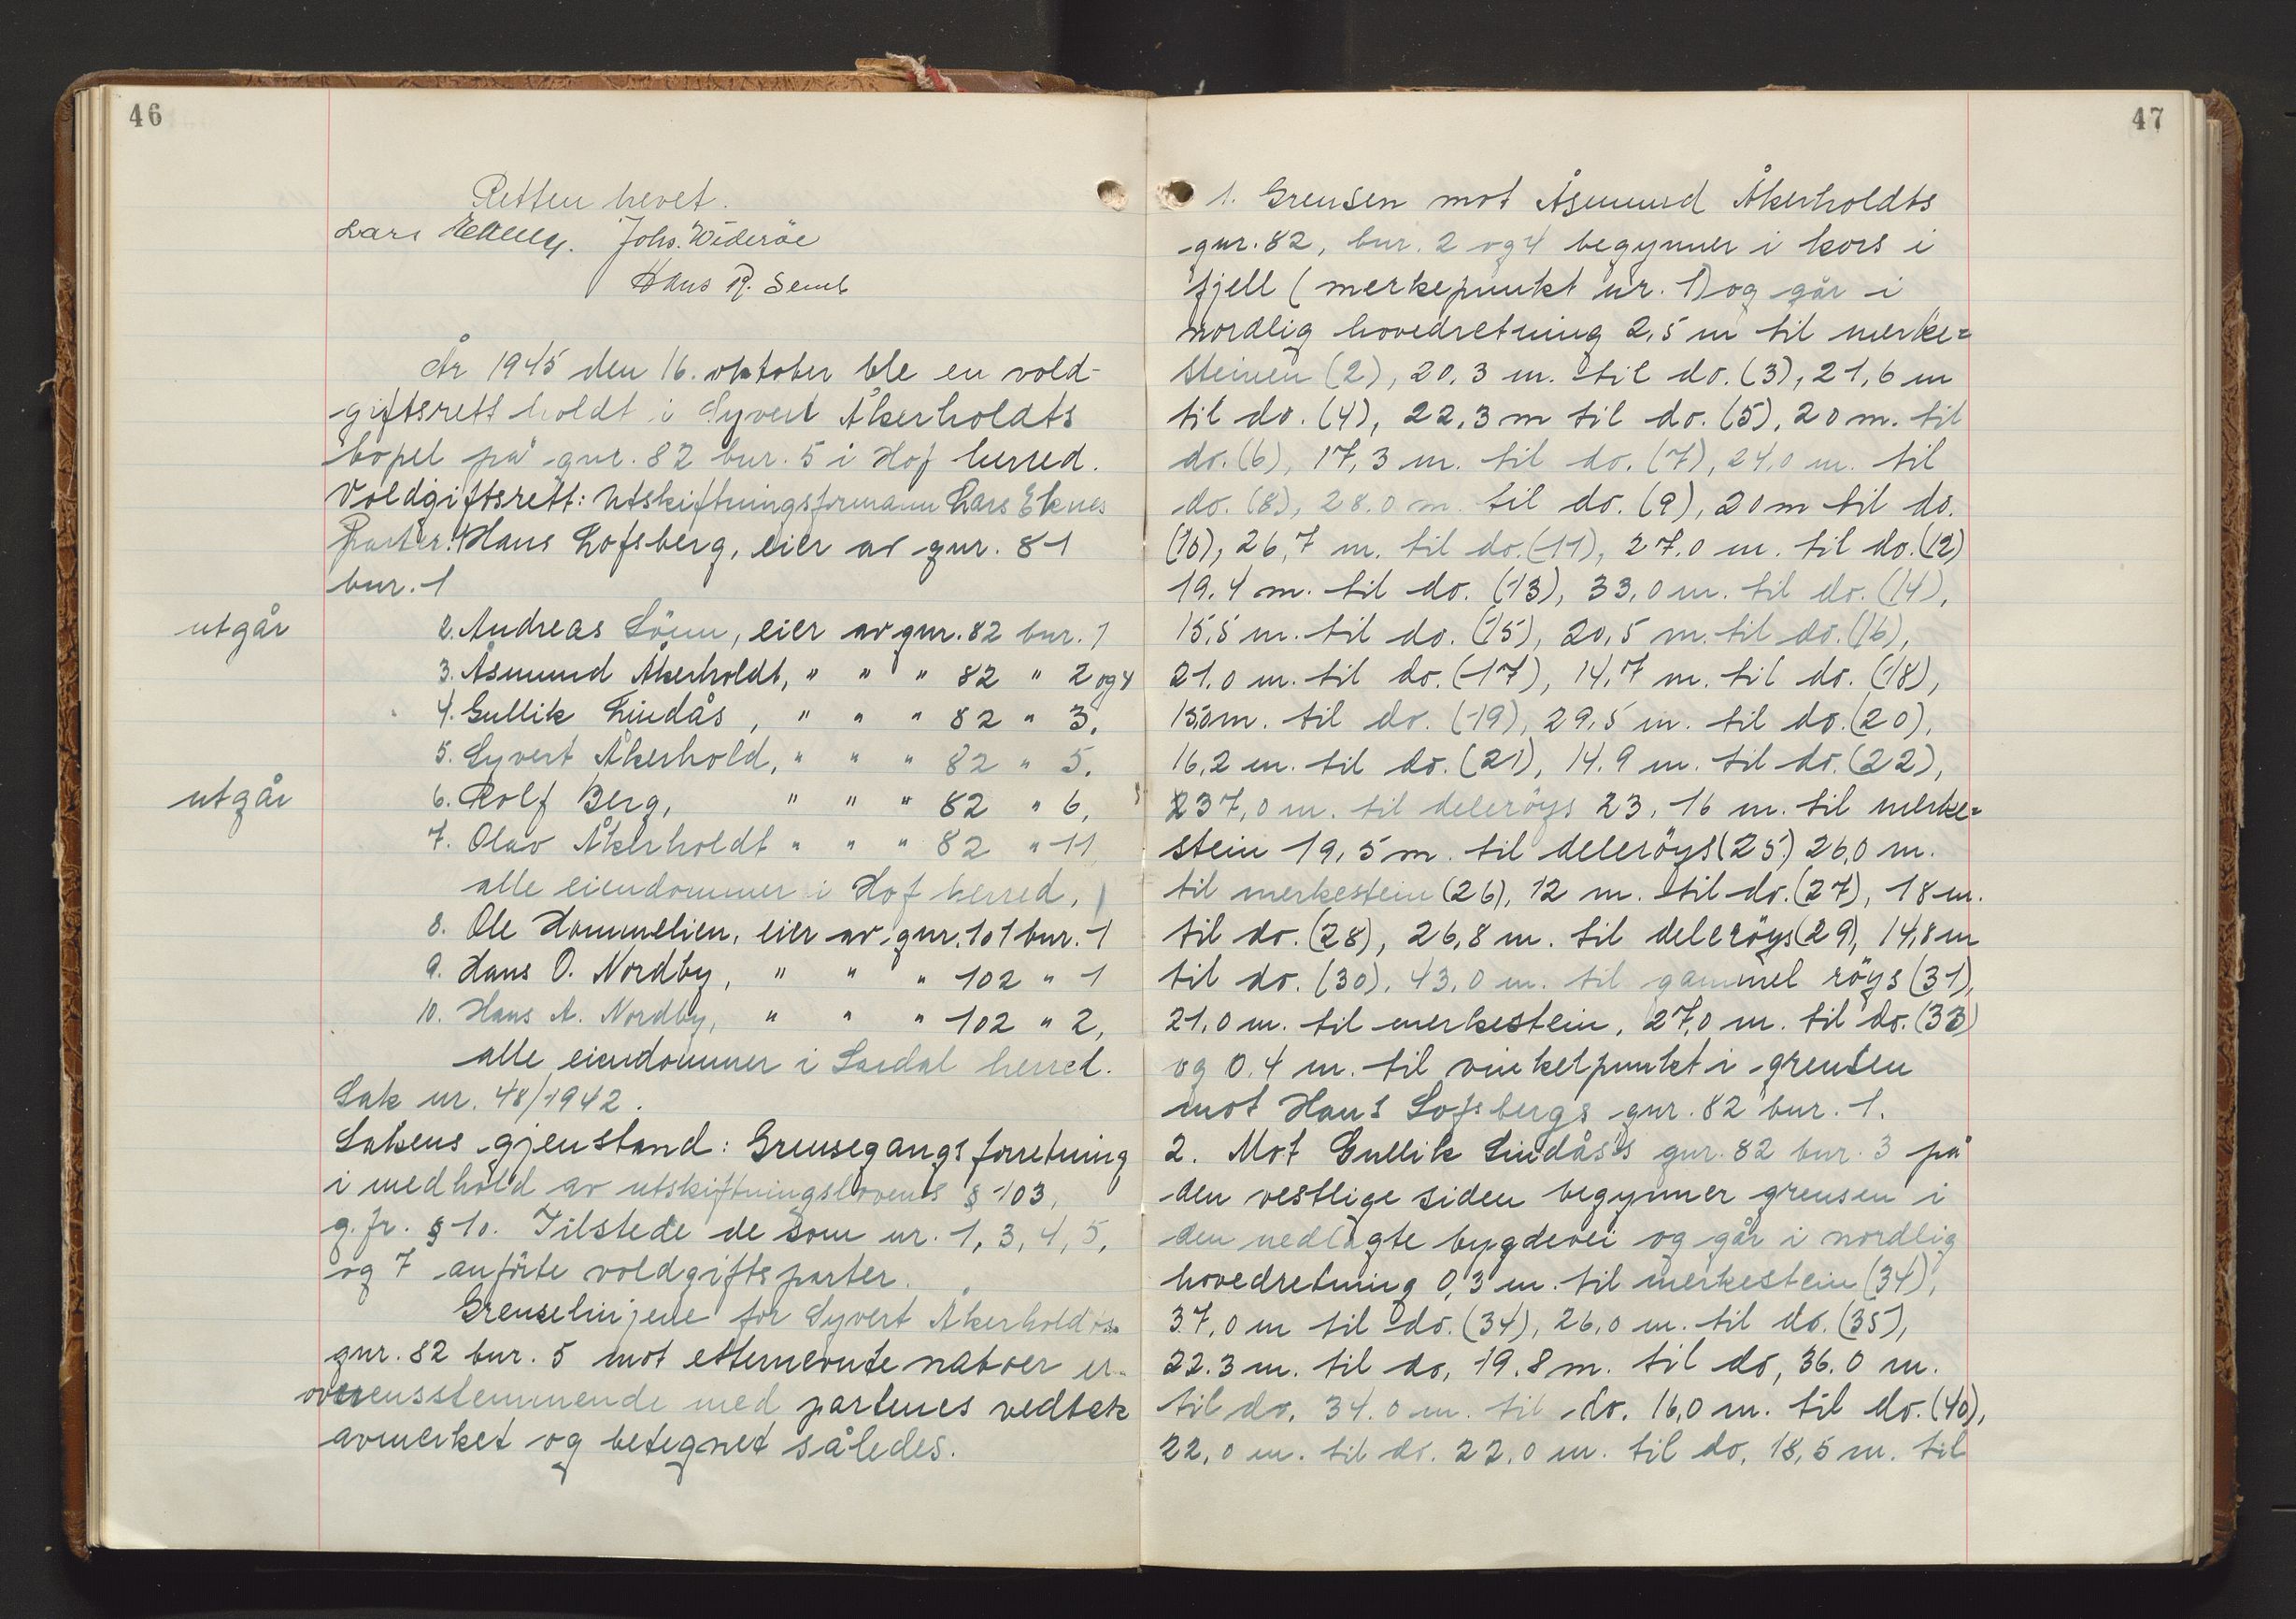 46
Retten hevet.
Lars Johs. Widerøe
Hans R. Semb
År 1945 den 16. oktober ble en vold-
giftsrett holdt i Syvert Åkerholdts
bopel på gnr. 82 bnr. 5 i Hof herred.
Voldgiftsrett: Utskiftningsformann Lars Eknes
Parter: 1 Hans Lofsberg, eier av gnr. 81
bnr. 1
utgår 2. Andreas Lönn, eier av gnr. 82 bnr. 1
3. Åsmund Åkerholdt, " " " 82 " 2 og 4
4. Gullik Lindås, " " " 82 " 3.
5. Syvert Åkerhold, " " " 82 " 5.
utgår 6. Rolf Berg, " " " 82 " 6,
7. Olav Åkerholdt " " " 82 " 11
alle eiendommer i Hof herred,
8. Ole Hommelien, eier av gnr. 101 bnr. 1
9. Hans O. Nordby, " " " 102 " 1
10. Hans A. Nordby, " " " 102 " 2,
alle eiendommer i Sandal herred.
Sak nr. 48/1942.
Sakens gjenstand: Grensegangsforretning
i medhold av utskiftningslovens § 103,
g. fr. § 10. Tilstede de som nr. 1, 3, 4, 5,
og 7 anförte voldgiftsparter.
Grenselinjene for Syvert Åkerholdts
gnr. 82 bnr. 5 mot etternevnte naboer er
overensstemmende med partenes vedtak
avmerket og betegnet således.
47
1. Grensen mot Åsmund Åkerholdts
gnr. 82, bnr. 2 og 4 begynner i kors i
fjell (merkepunkt nr. 1) og går i
nordlig hovedretning 2,5 m til merke=
steinen (2), 20,3 m. til do. (3), 21,6 m
til do. (4), 22,3 m til do. (5), 20 m. til
do. (6), 17,3 m. til do. (7), 24,0 m. til
do. (8), 28.0 m. til do. (9), 20 m til do.
(10), 26,7 m. til do. (11), 27.0 m. til do. (12)
19.4 m. til do. (13), 33,0 m. til do. (14),
15,5 m. til do. (15), 20,5 m. til do. (16),
21.0 m. til do. (17), 14,7 m. til do. (18),
15,0 m. til do. (19), 29,5 m. til do. (20),
16,2 m. til do. (21), 14.9 m. til do. (22),
237,0 m. til deleröys 23, 16 m. til merke=
stein 19,5 m. til deleröys (25) 26,0 m.
til merkestein (26), 12 m. til do. (27), 18 m.
til do. (28), 26,8 m. til deleröys (29), 14,8 m
til do. (30), 43,0 m. til gammel röys (31),
21,0 m. til merkestein, 27,0 m. til do. (33)
og 0.4 m. til vinkelpunkt i grensen
mot Hans Lofsbergs gnr. 82 bnr. 1.
2. Mot Gullik Lindås's gnr. 82 bnr. 3 på
den vestlige siden begynner grensen i
den nedlagte bygdevei og går i nordlig
hovedretning 0,3 m. til merkestein (34),
37,0 m til do. (34), 26,0 m. til do. (35),
22.3 m. til do, 19.8 m. til do, 36.0 m.
til do, 34.0 m. til do. 16,0 m. til do. (40),
22,0 m. til do. 22,0 m. til do, 18,5 m. til